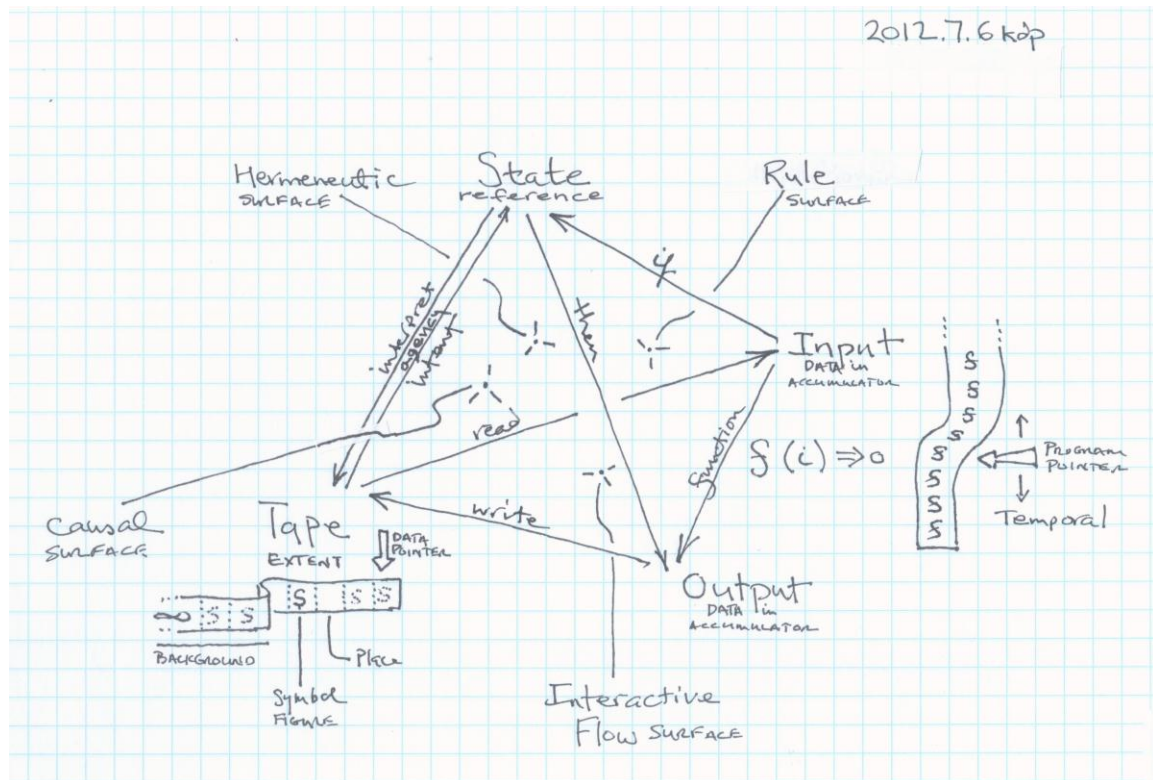 2012.7.6 kdp
Hermeneutic
SURFACE
State
reference
Rule
SURFACE
if
then
interpret
agency
intent
Input
DATA in
ACCUMULATOR
read
function
f (i) ⇒ o
PROGRAM
POINTER
Temporal
write
Causal
SURFACE
Tape
EXTENT
DATA
POINTER
Output
DATA in
ACCUMULATOR
∞ S S S S S
BACKGROUND
Place
Symbol
FIGURE
Interactive
Flow SURFACE
f
f
f
f
f
f
f
f